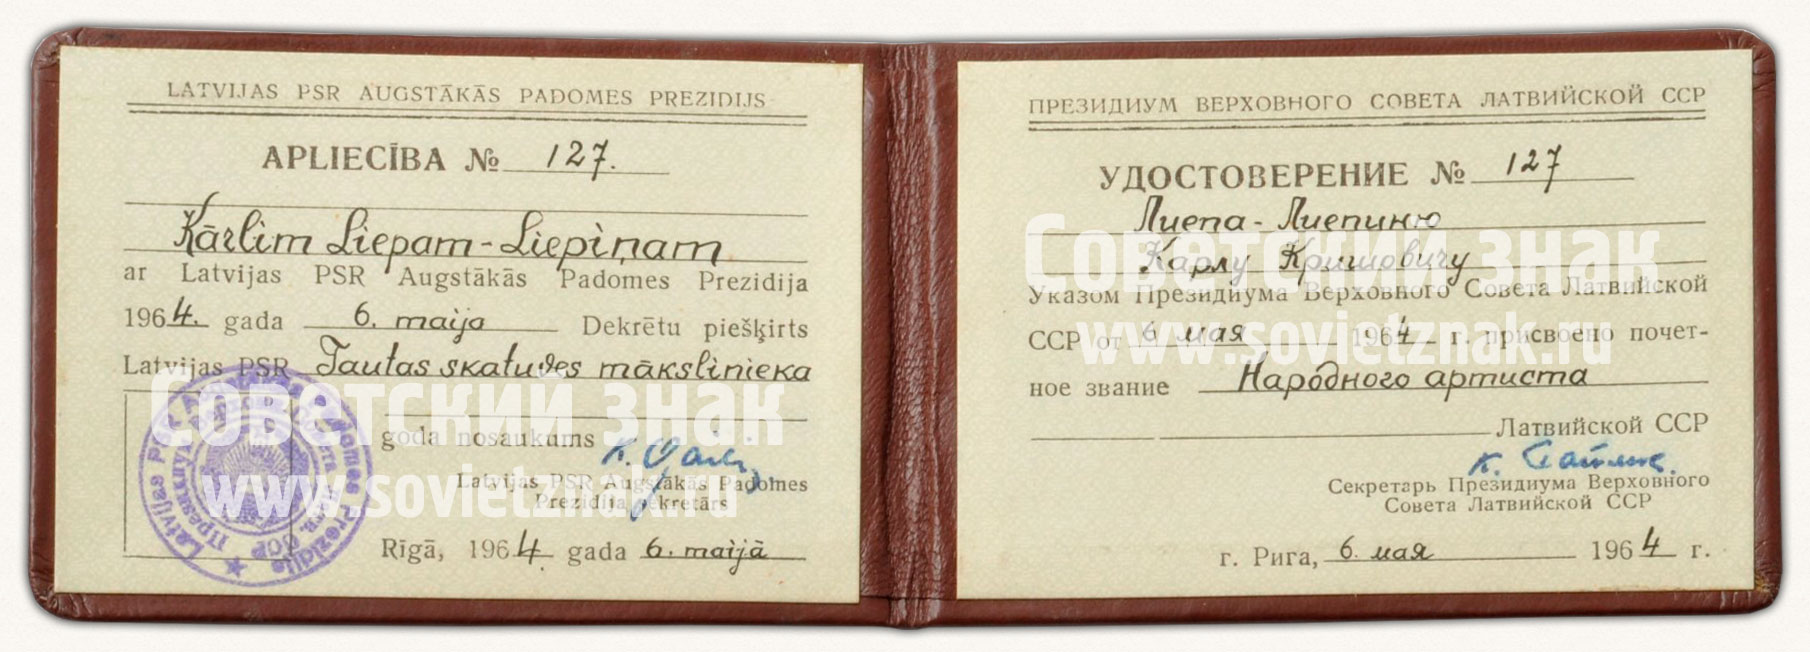 LATVIJAS PSR AUGSTĀKĀS PADOMES PREZIDIJS
APLIECĪBA № 127.
Kārlim Liepam-Liepiņam
ar Latvijas PSR Augstākās Padomes Prezidija
1964. gada 6. maija Dekrētu piešķirts
Latvijas PSR Tautas skatuves mākslinieka
goda nosaukums
Latvijas PSR Augstākās Padomes
Prezidija sekretārs
Rīgā, 1964. gada 6. maijā
Latvijas PSR Augstākās Padomes Prezidijs
Советский знак
www.sovietznak.ru
ПРЕЗИДИУМ ВЕРХОВНОГО СОВЕТА ЛАТВИЙСКОЙ ССР
УДОСТОВЕРЕНИЕ № 127
Лиепа-Лиепиню
Карлу Кришовичу
Указом Президиума Верховного Совета Латвийской
ССР от 6 мая 1964 г. присвоено почет-
ное звание Народного артиста
Латвийской ССР
Секретарь Президиума Верховного
Совета Латвийской ССР
г. Рига, 6. мая 1964 г.
Советский знак
www.sovietznak.ru